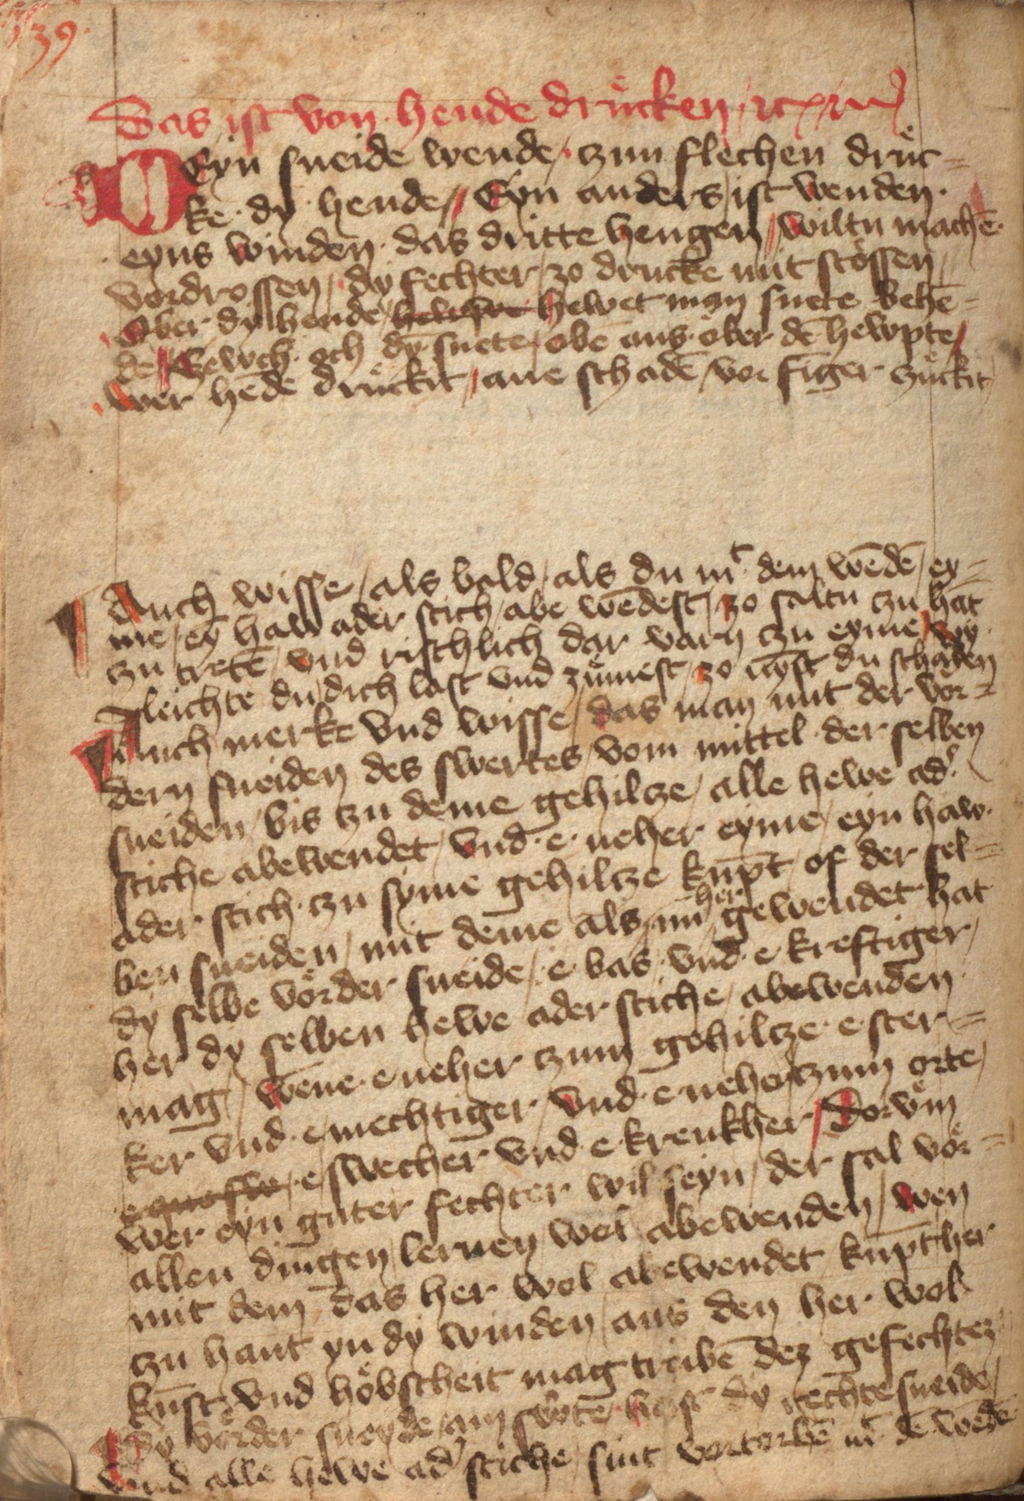 39
Das ist von hende drücken rc~
Deyn sneide wende / czun flechen druͤc=
ke dy hende // Eyn anders ist wenden
eyns winden das dritte hengen / wiltu machē
vordrossen / dy fechter / zo drucke mit stössen
Ober dy hende / hewet man snete behē=
de // Czewch och dy snete / obē aus ober dē hewpte /
wer hēde druͤckit / ane schadē / vor fīger zuͤckit
Auch wisse / als bald / als du mt dem wēdē / ey=
me / eȳ haw ader stich / abe wēdest / zo saltu zu hāt
zu tretē / vnd rischlich dar varn czu eyme / wy
leichte du dich last vnd zuͤmest / zo nȳst du schaden
Auch merke vnd wisse / das man mit der voͤr=
dern sneiden des swertes / vom mittel der selben
sneiden / bis czu deme gehilcze / alle hewe adr
stiche abewendet / vnd e neher eyme / eyn haw
ader stich czu syme gehilcze kūpt / of der sel=
ben sneiden / mit deme als im her gewendet hat
dy selbe voͤrder sneide / e bas vnd e kreftiger /
her dy selben hewe ader stiche / abewenden
mag / wene e neher czum gehilcze e ster=
ker vnd e mechtiger / vnd e neher czum orte /
e swecher vnd e krenkher / Dorvm
wer eyn guter fechter wil seyn / der sal voͤr=
allen dingen lernen wol abewenden / wen
mit dem das her wol abewendet kūpt her
zu hant yn dy winden / aus den her wol
kunst vnd hoͤbscheit mag tribē dez gefechtez
Dy voͤrder sneyde am swertē heist dy rechte sneide /
vnd alle hewe adr stiche / sint vortorbē mt dē wēdē